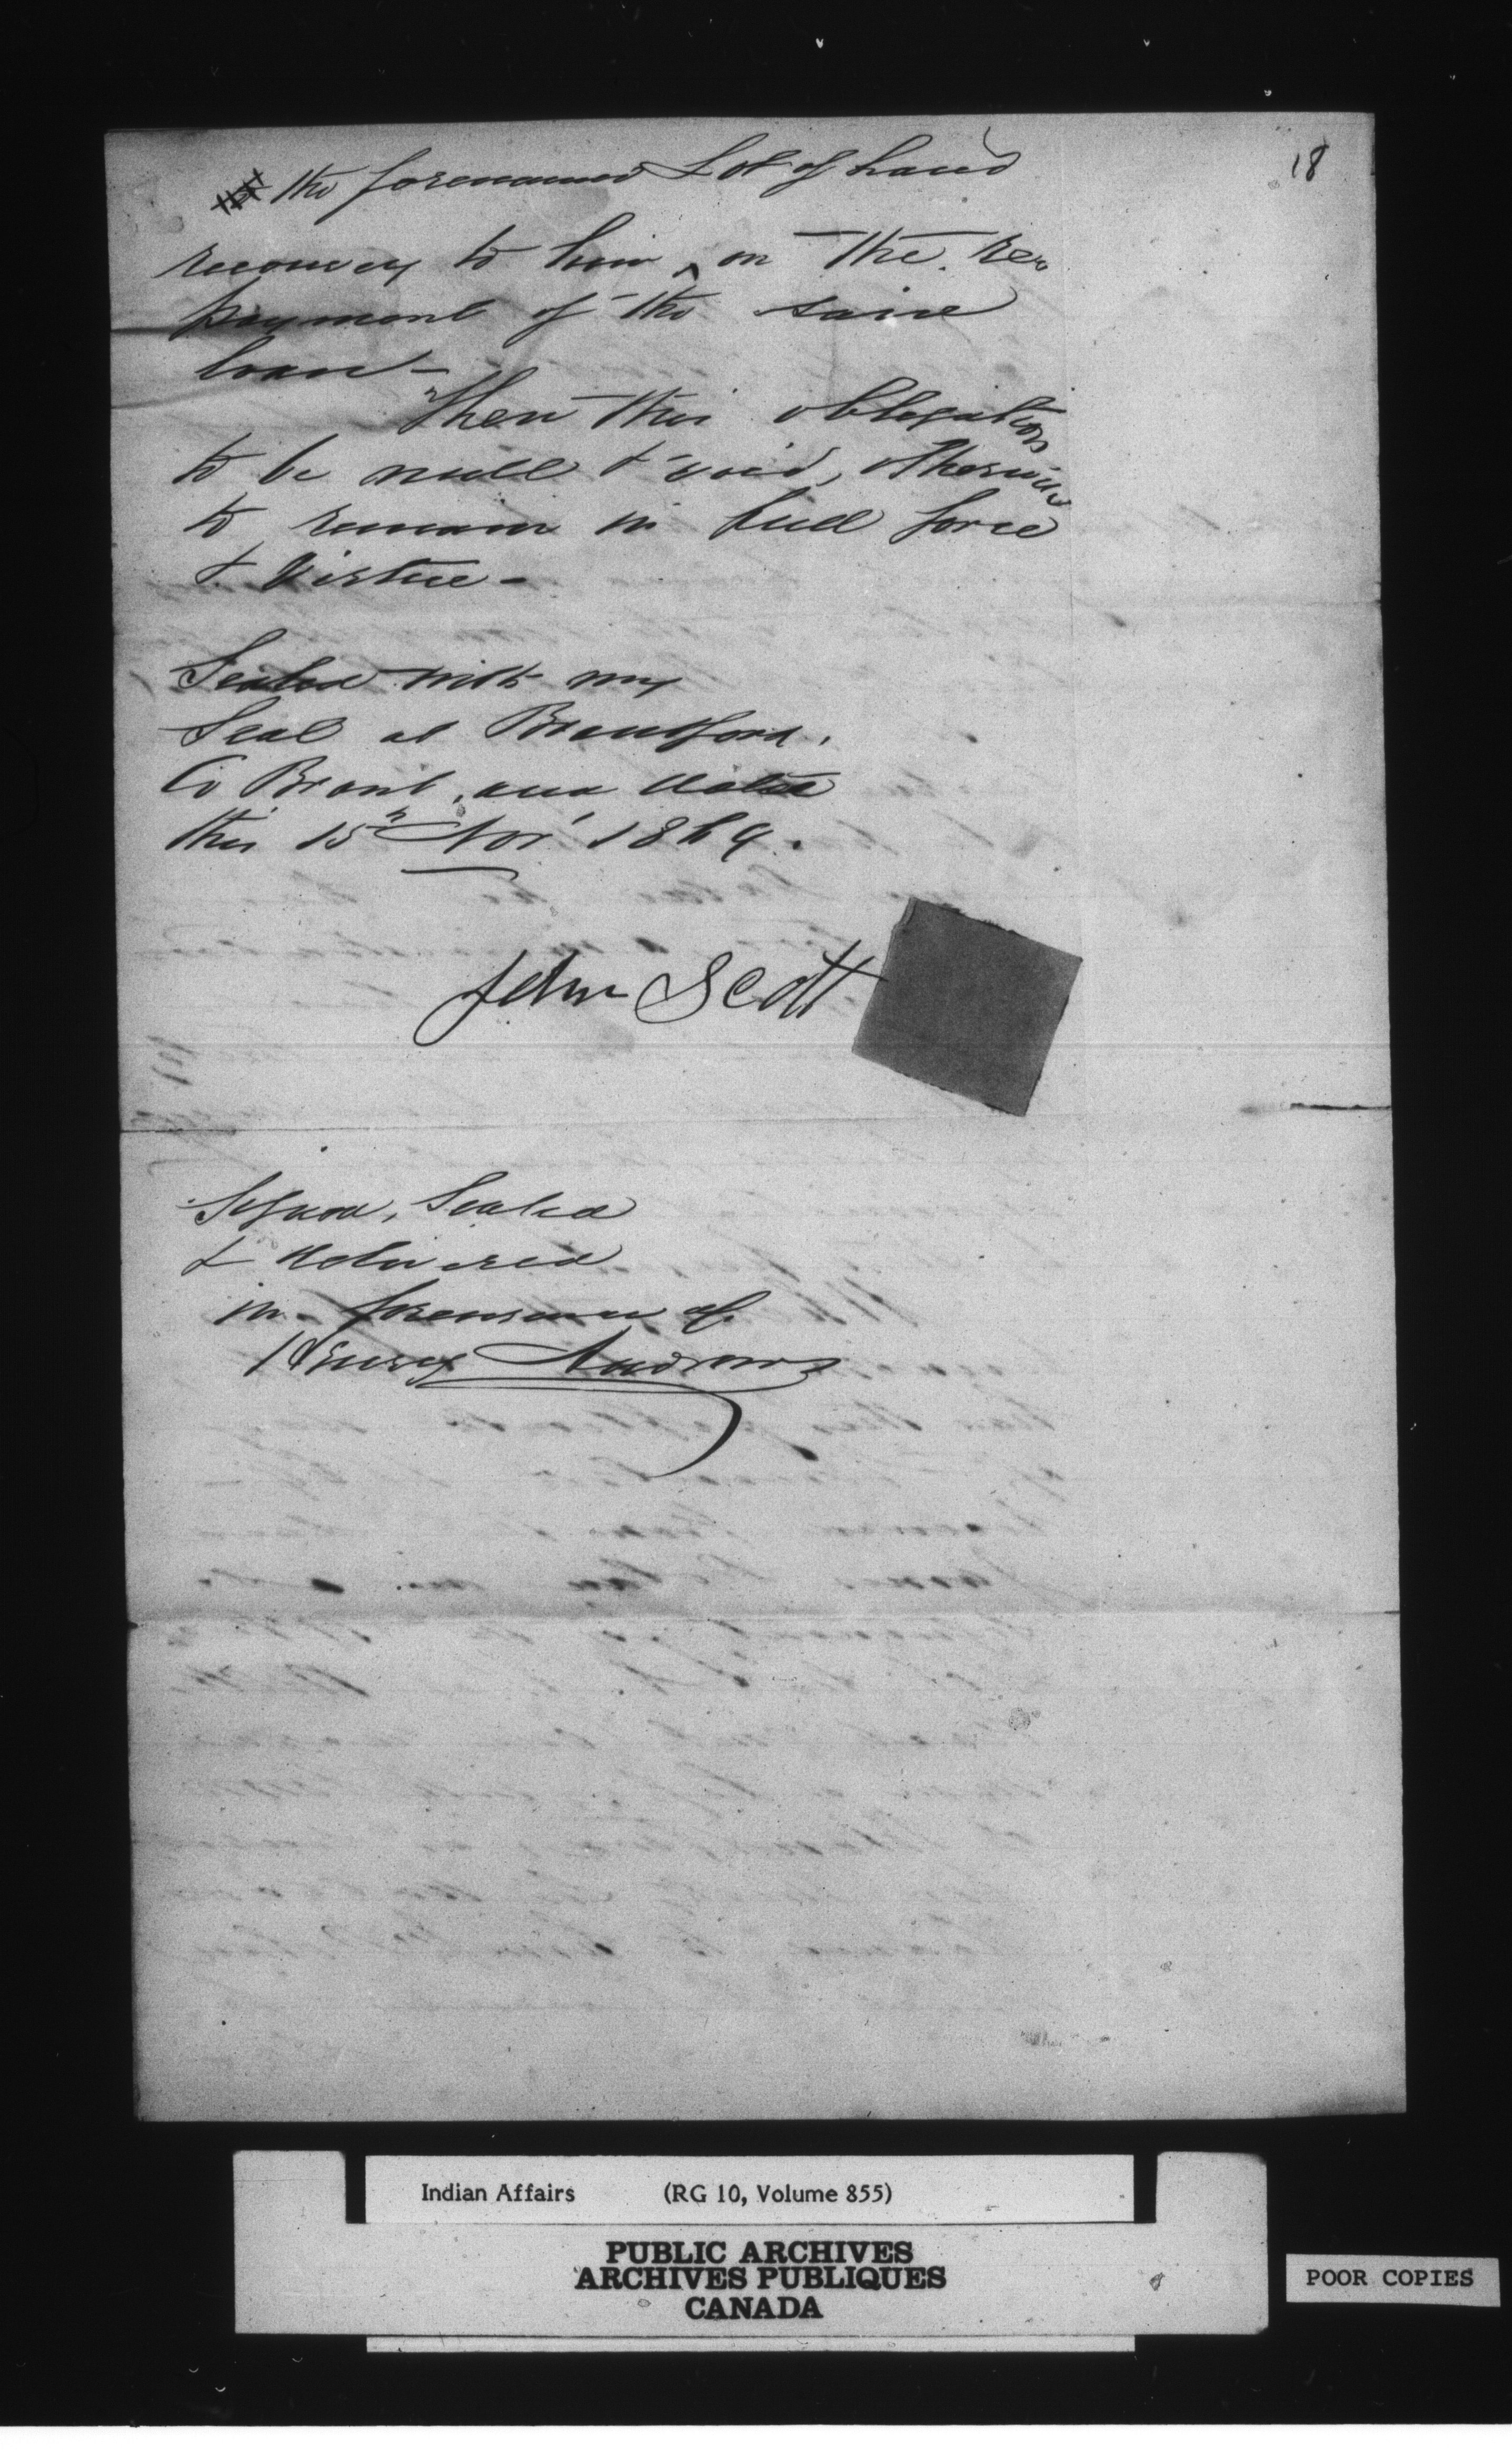 18
the forenamed Lot of Land
reconvey to him, on the re-
payment of the said
loan -
Then this obligation
to be null & void, otherwise
to remain in full force
& Virtue -
Sealed with my
Seal at Brantford,
Co Brant, and dated
this 15th Nov' 1869.
John Scott
Signed, Sealed
& delivered
in presence of
Henry Andrews
Indian Affairs (RG 10, Volume 855)
PUBLIC ARCHIVES
ARCHIVES PUBLIQUES
CANADA
POOR COPIES